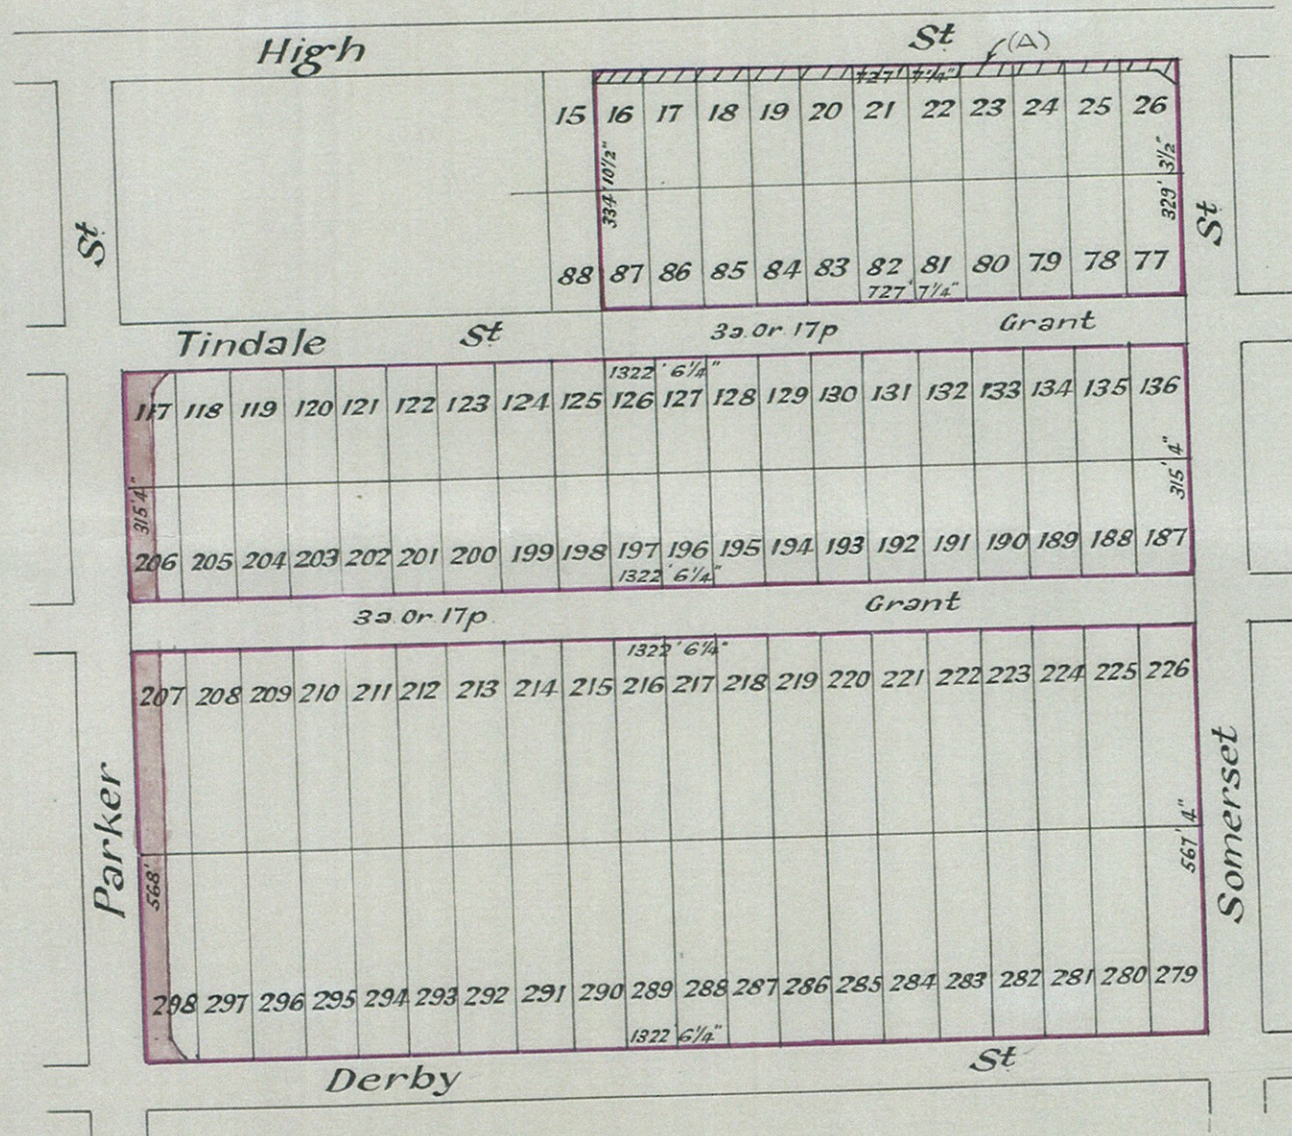 High St (A)
727' 7¼"
15 16 17 18 19 20 21 22 23 24 25 26
334' 10½"
329' 3½"
St
St
88 87 86 85 84 83 82 81 80 79 78 77
727' 7¼"
Tindale St 3a. 0r. 17p Grant
1322' 6¼"
117 118 119 120 121 122 123 124 125 126 127 128 129 130 131 132 133 134 135 136
315' 4"
315' 4"
206 205 204 203 202 201 200 199 198 197 196 195 194 193 192 191 190 189 188 187
1322' 6¼"
3a. 0r. 17p. Grant
1322' 6¼"
207 208 209 210 211 212 213 214 215 216 217 218 219 220 221 222 223 224 225 226
Parker
568'
567' 4"
Somerset
298 297 296 295 294 293 292 291 290 289 288 287 286 285 284 283 282 281 280 279
1322' 6¼"
Derby St